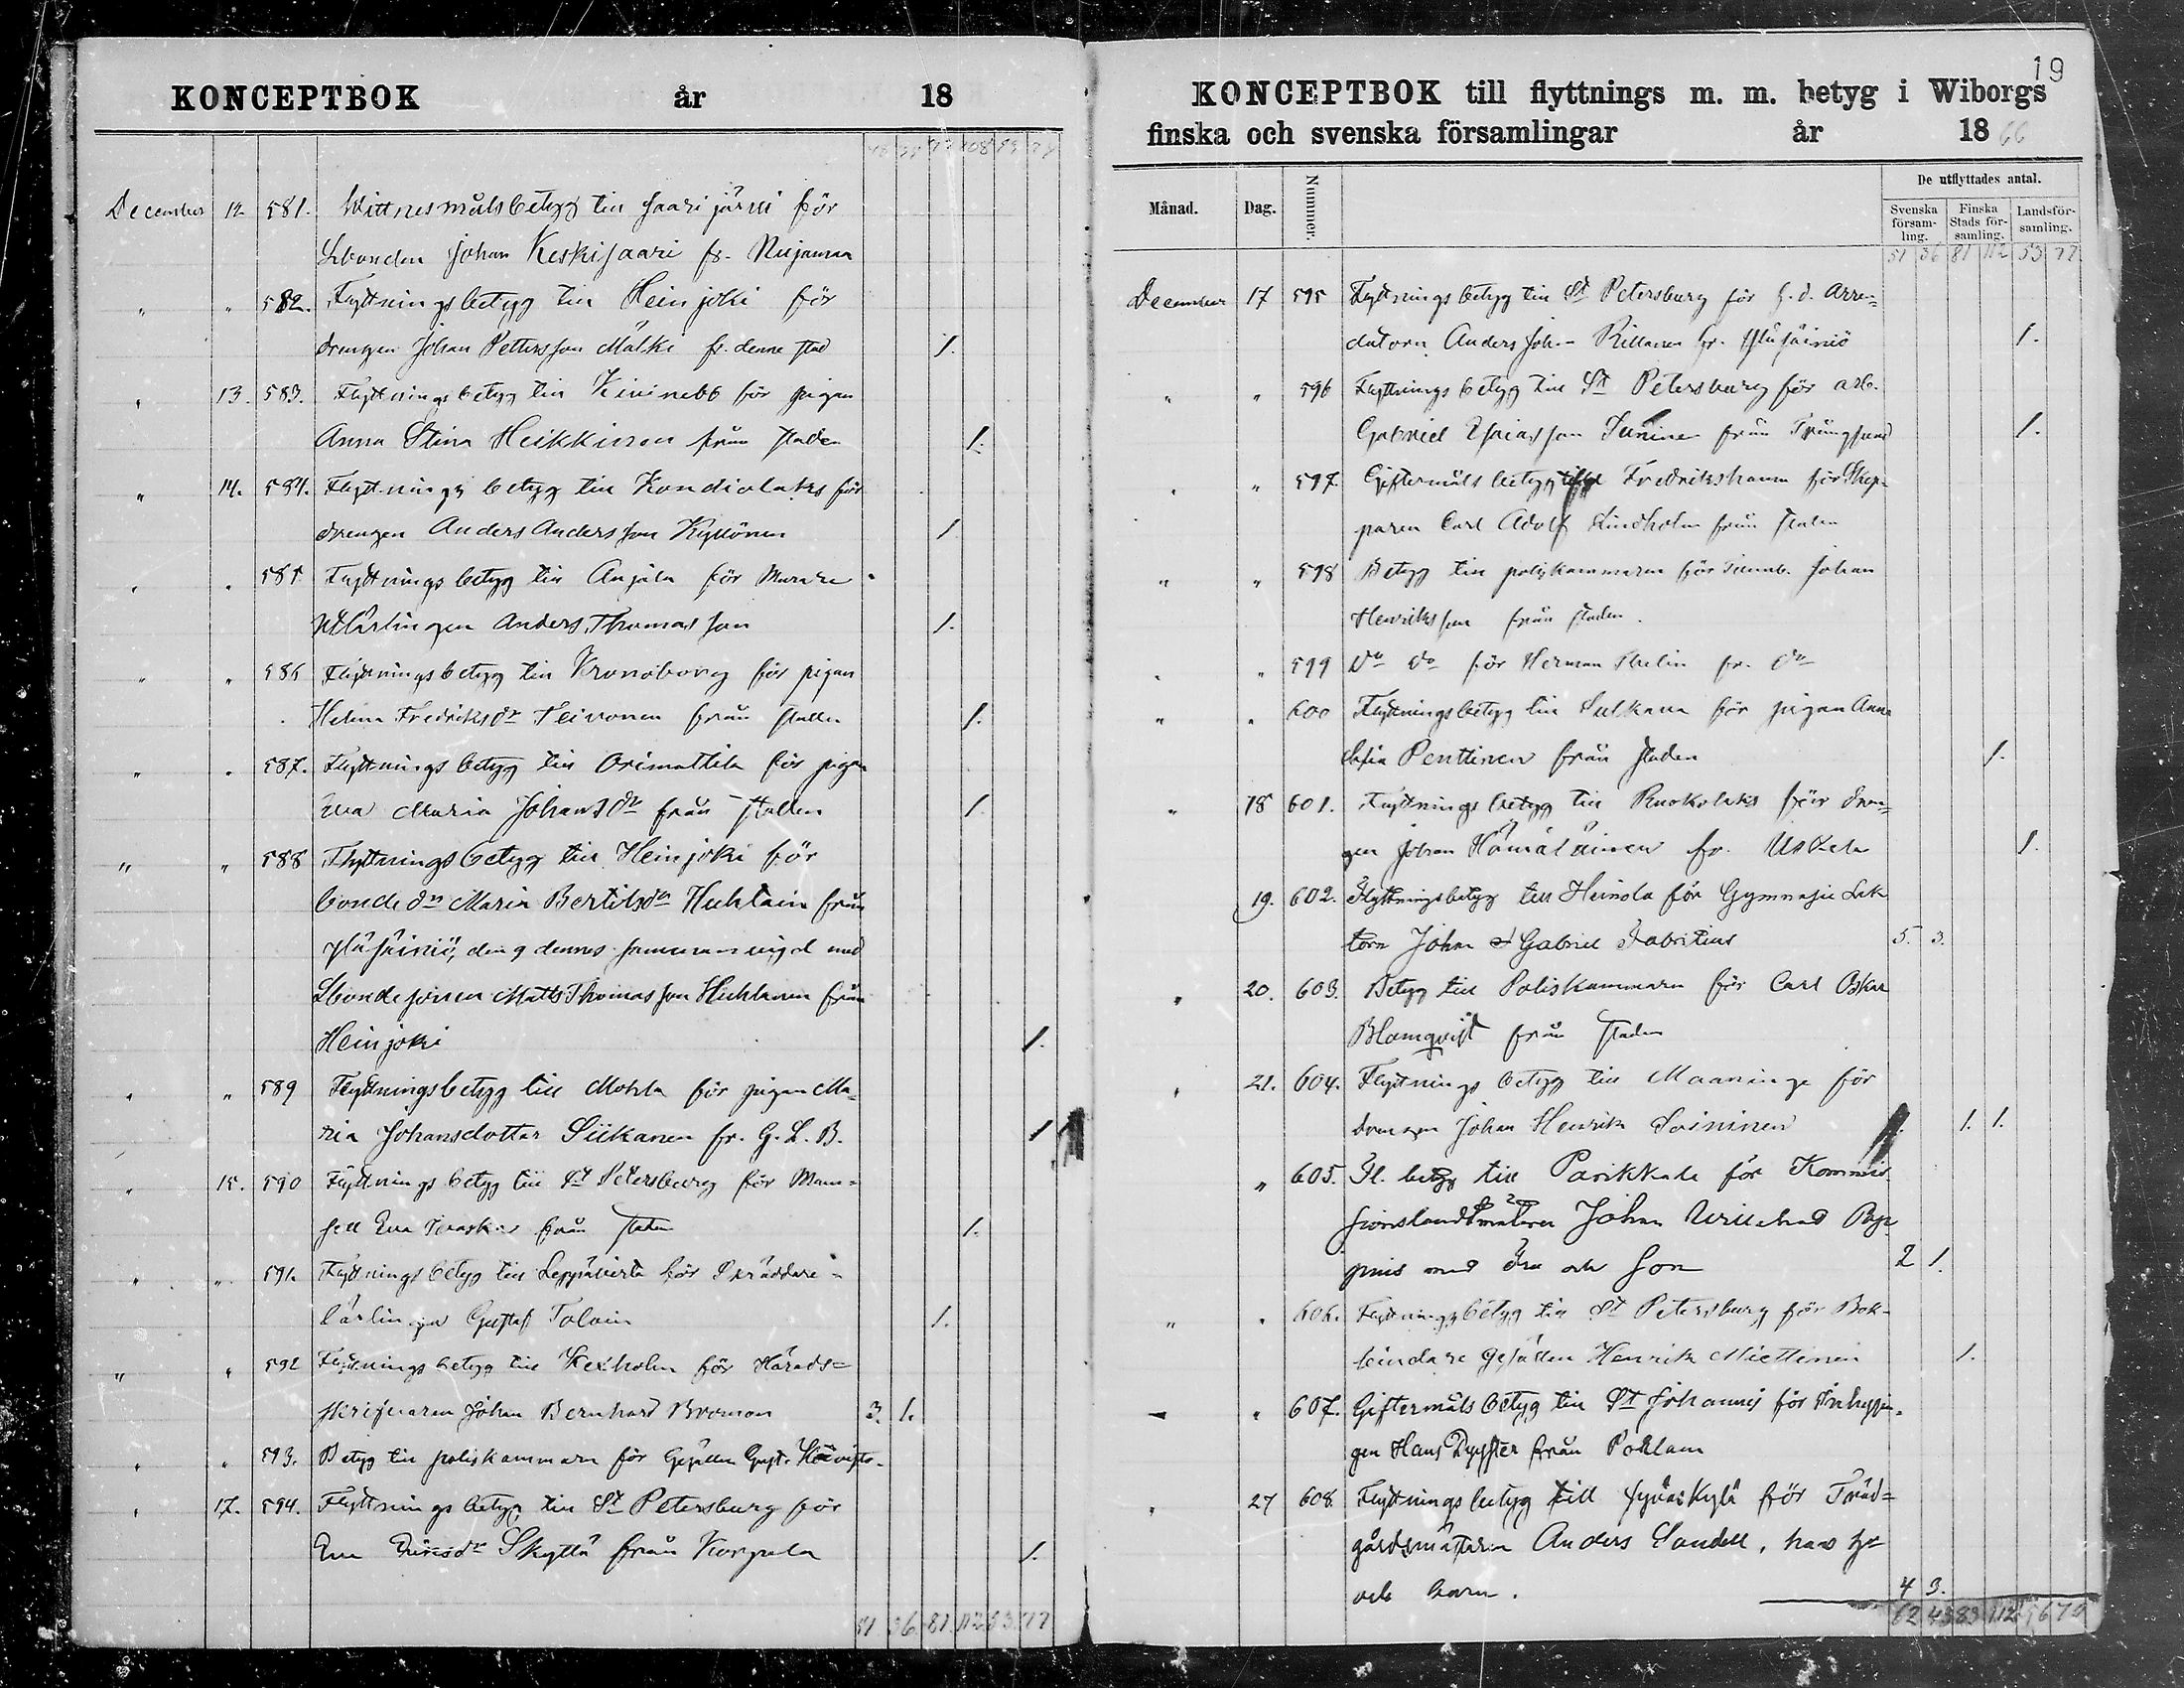 KONCEPTBOK år 18
December 12 581. Wittnesmålsbetyg till Saarijärvi för
Lbonden Johan Keskisaari fr. Nuijama
" " 582. Flyttningsbetyg till Heinjoki för
drengen Johan Petterson Mälki fr. denne stad 1.
" 13. 583. Flyttningsbetyg till Kivinebb för pigan
Anna Stina Heikkinen från staden 1.
" 14. 584. Flyttnings betyg till Kondiolaks för
drengen Anders Andersson Kyllönen 1
" " 585 Flyttningsbetyg till Anjala för Murare
lärlingen Anders Thomasson 1.
" " 586 Flyttningsbetyg till Kronoborg för pigan
Helena Fredriksdr Teivonen från staden 1.
" " 587. Flyttningsbetyg till Orimattila för pigan
Eva Maria Johansdr från staden 1
" " 588 Flyttningsbetyg till Heinjoki för
bondedn Maria Bertilsdr Huhtain från
Yläsäiniö, den 9 dennes sammanvigd med
Lbondesonen Matts Thomasson Huhtanen från
Heinjoki 1.
" " 589 Flyttningsbetyg till Mohla för pigan Ma-
ria Johansdotter Siikanen fr. G. L. B. 1
" 15. 590 Flyttningsbetyg till St Petersburg för Mam-
sell Eva från staden 1.
" " 591. Flyttningsbetyg till Leppävirta för Skräddare-
lärlingen Gustaf Tolvin 1.
" " 592 Flyttningsbetyg till Kexholm för Härads=
skrifvaren Johan Bernhard Broman 3. 1.
" " 593. Betyg till poliskammarn för Gesällen Gust.
" 17. 594. Flyttningsbetyg till St Petersburg för
Eva Skyttä från Korpela 1.
51 36 81 112 53 77
19
KONCEPTBOK till flyttnings m. m. betyg i Wiborgs
finska och svenska församlingar år 1866
Månad. Dag. Nummer. De utflyttades antal.
Svenska församling. Finska Stads församling. Landsförsamling.
51 36 81 112 53 77
December 17 595 Flyttningsbetyg till St Petersburg för f.d. Arren=
datorn Anders Joh. Killanen fr. Yläsäiniö 1.
" " 596 Flyttningsbetyg till St Petersburg för arb.
Gabriel Esaiasson Suninen från Trångsund 1.
" " 597. Giftermåls betyg till Fredrikshamn för Skep-
paren Carl Adolf Lindholm från staden
" " 598 Betyg till poliskammarn för Johan
Henriksson från staden.
" " 599 do do för Herman Thelin fr. do
" " 600 Flyttningsbetyg till Sulkava för pigan Anna
Sofia Penttinen från staden 1.
" 18 601. Flyttningsbetyg till Ruokolaks för dren-
gen Johan Hämäläinen fr. Uskela 1.
19. 602. Flyttningsbetyg till Heinola för Gymnasie Lek
torn Johan Gabriel Fabritius 5. 3.
" 20. 603. Betyg till Poliskammarn för Carl Oskar
Blomqvist från staden
" 21. 604. Flyttningsbetyg till Maaninga för
drengen Johan Henrik Soininen 1. 1.
" 605. Fl. betyg till Parikkala för Kommis
sionslandtmätaren Johan Willehad Pop
pius med fru och son 2 1.
" " 606. Flyttningsbetyg till St Petersburg för Bok-
bindare Gesällen Henrik Miettinen 1.
" " 607. Giftermåls betyg till St Johannis för Inhysin-
gen Hans från
" 27 608. Flyttningsbetyg till Jyväskylä för Träd=
gårdsmästarn Anders Sandell, hans h-
och barn. 4 3.
62 43 83 112